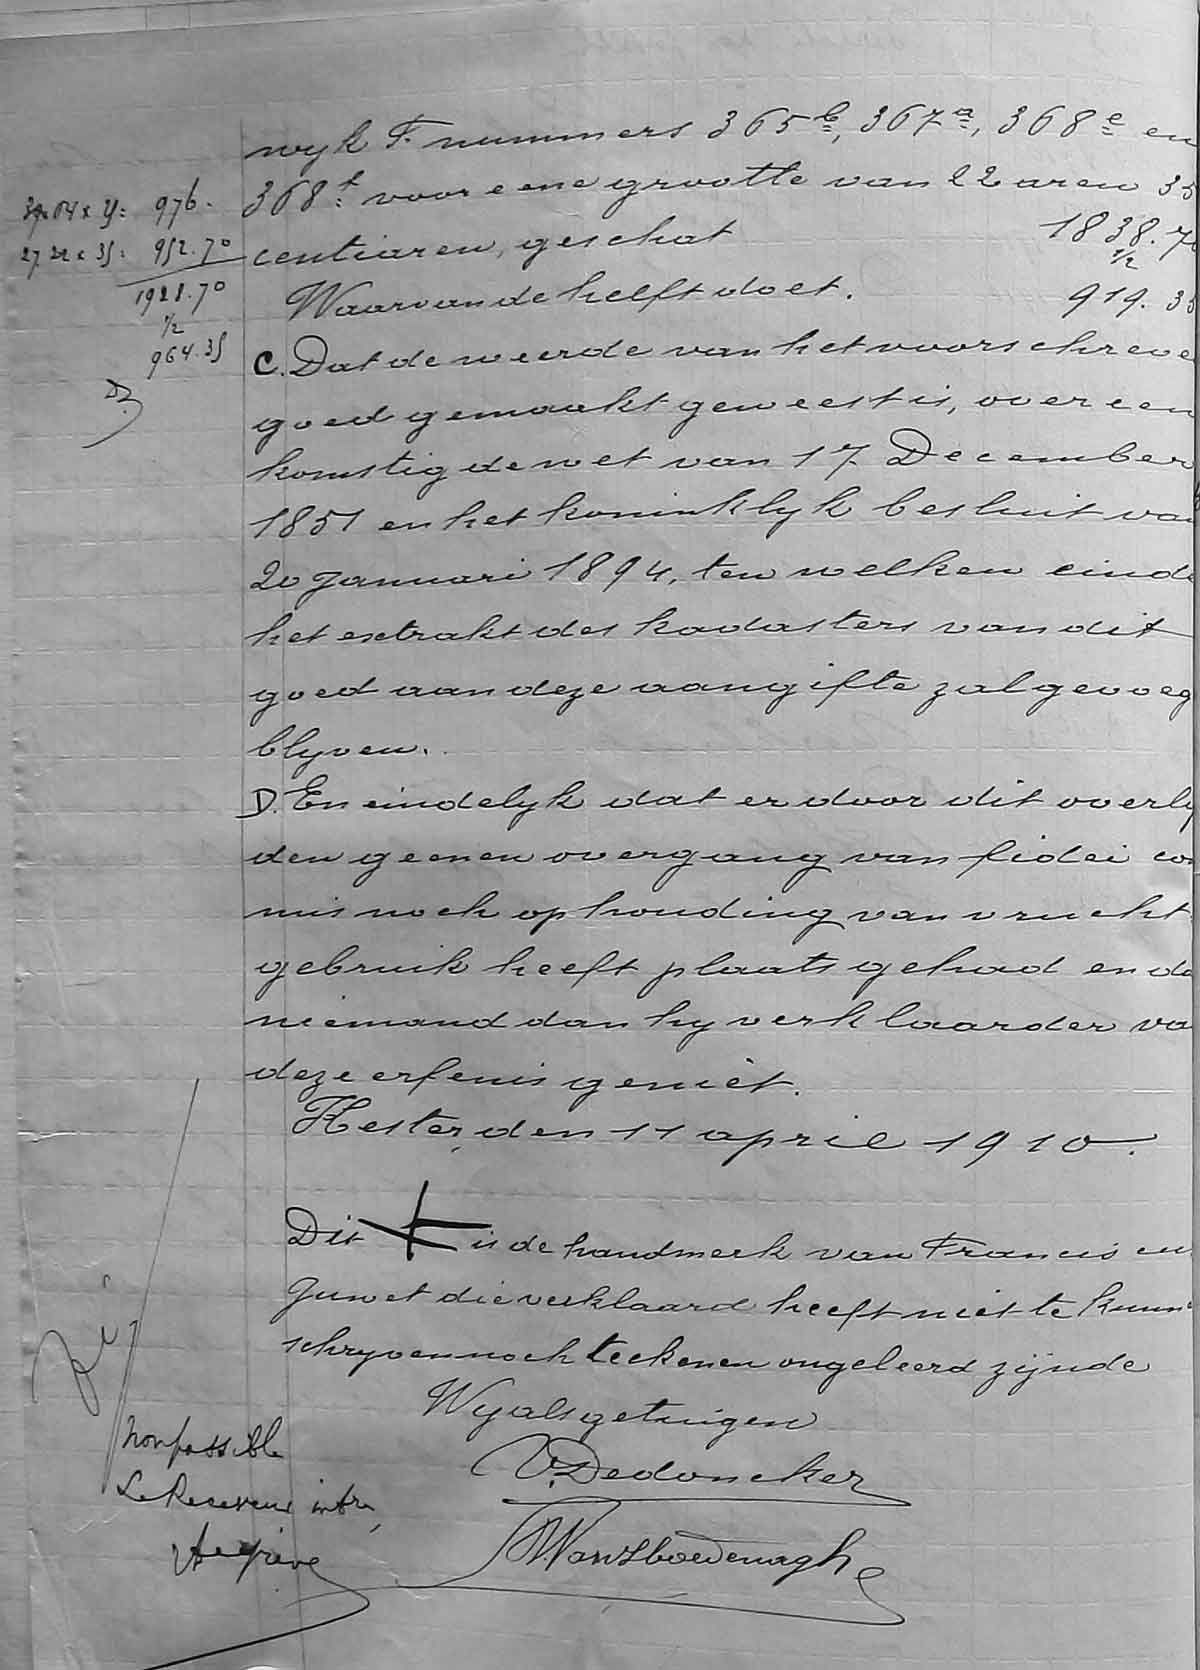 wyk F nummers 365b, 367a, 368e en
368f voor eene grootte van 22 aren 35
976.
centiaren, geschat 1838.70
952.70
1/2
1928.70
Waarvan de helft doet. 919.35
1/2
964.35
C. Dat de weerde van het voorschreve
goed gemaakt geweest is, over een
komstig de wet van 17 December
1851 en het koninklyk besluit van
20 Januari 1894, ten welken einde
het extrakt des kadasters van dit
goed aan deze aangifte zal gevoeg
blyven.
D. En eindelyk dat er door dit overly
den geenen overgang van fidei com
mis noch ophouding van vrucht
gebruik heeft plaats gehad en da
niemand dan hy verklaarder va
deze erfenis geniet.
Hester, den 11 april 1910.
Dit is de handmerk van Francis
Juwet die verklaard heeft niet te kunn
schryven noch teekenen ongeleerd zijnde
Wy als getuigen
V. Dedoncker
Non passible
Le Receveur